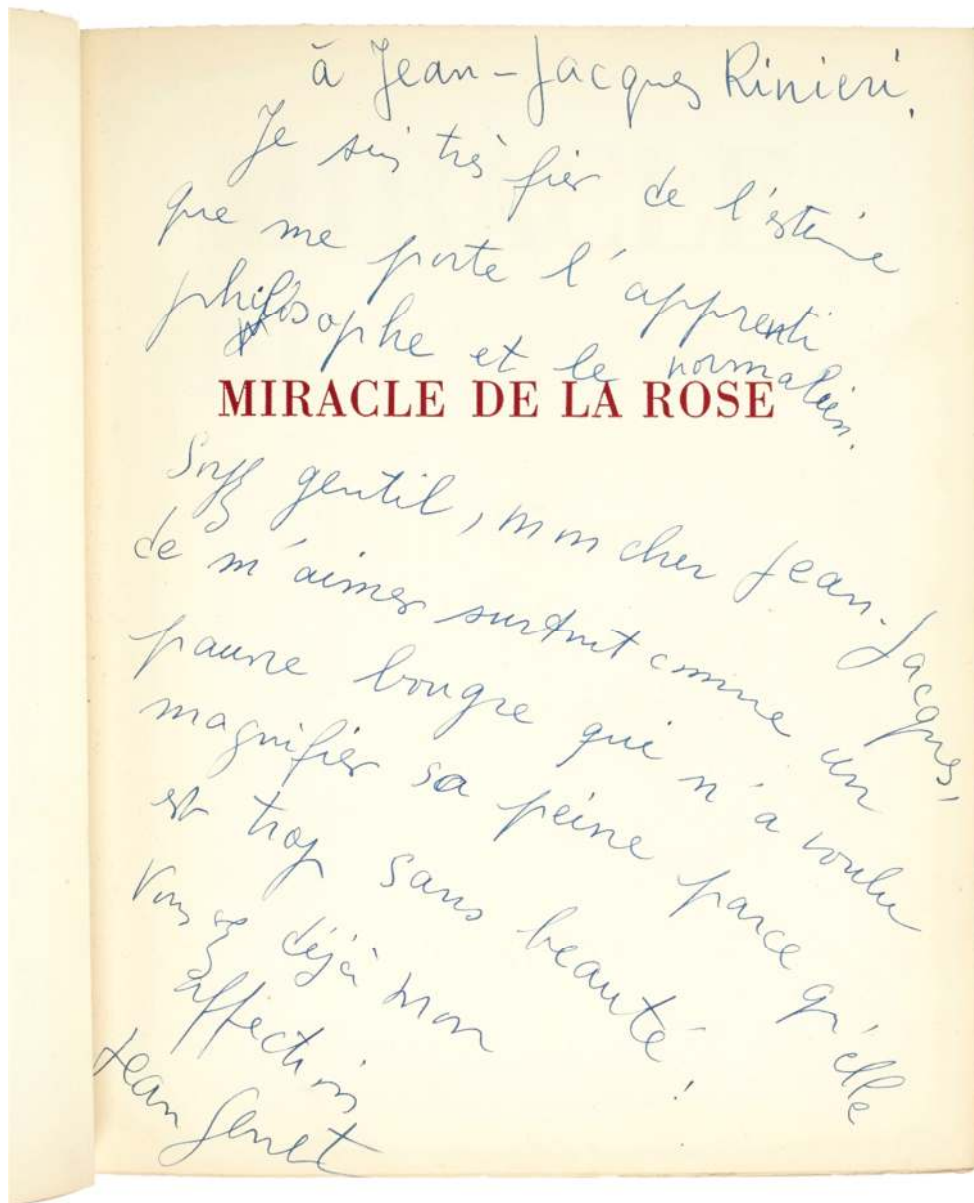 à Jean-Jacques Rinieri.
Je suis très fier de l'estime
que me porte l'apprenti
philosophe et le normalien.
MIRACLE DE LA ROSE
Soyez gentil, mon cher Jean-Jacques,
de m'aimer surtout comme un
pauvre bougre qui n'a voulu
magnifier sa peine parce qu'elle
est trop sans beauté!
Vous avez déjà mon
affection
Jean Genet